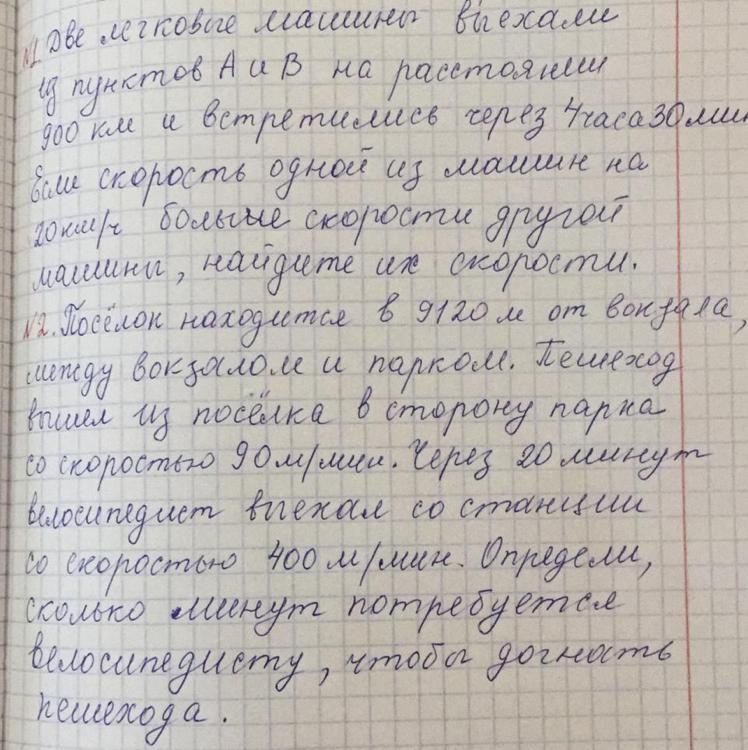 №1. Две легковые машины выехали
из пунктов А и В на расстоянии
900 км и встретились через 4 часа 30 мин
Если скорость одной из машин на
20 км/ч больше скорости другой
машины, найдите их скорости.
№2. Посёлок находится в 9120 м от вокзала,
между вокзалом и парком. Пешеход
вышел из посёлка в сторону парка
со скоростью 90 м/мин. Через 20 минут
велосипедист выехал со станции
со скоростью 400 м/мин. Определи,
сколько минут потребуется
велосипедисту, чтобы догнать
пешехода.